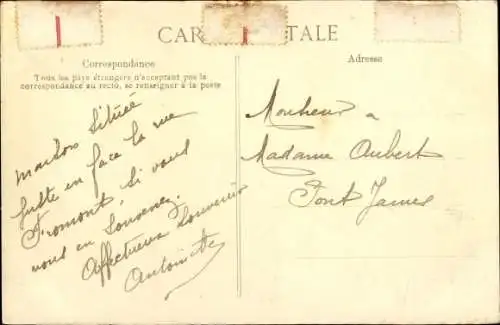 CAR POSTALE
Correspondance
Tous les pays étrangers n'acceptent pas la
correspondance au recto, se renseigner à la poste
Adresse
maison située
juste en face la rue
Fromont, si vous
vous en souvenez.
Affectueux souvenir
Antoinette
Monsieur &
Madame Aubert
Pont James